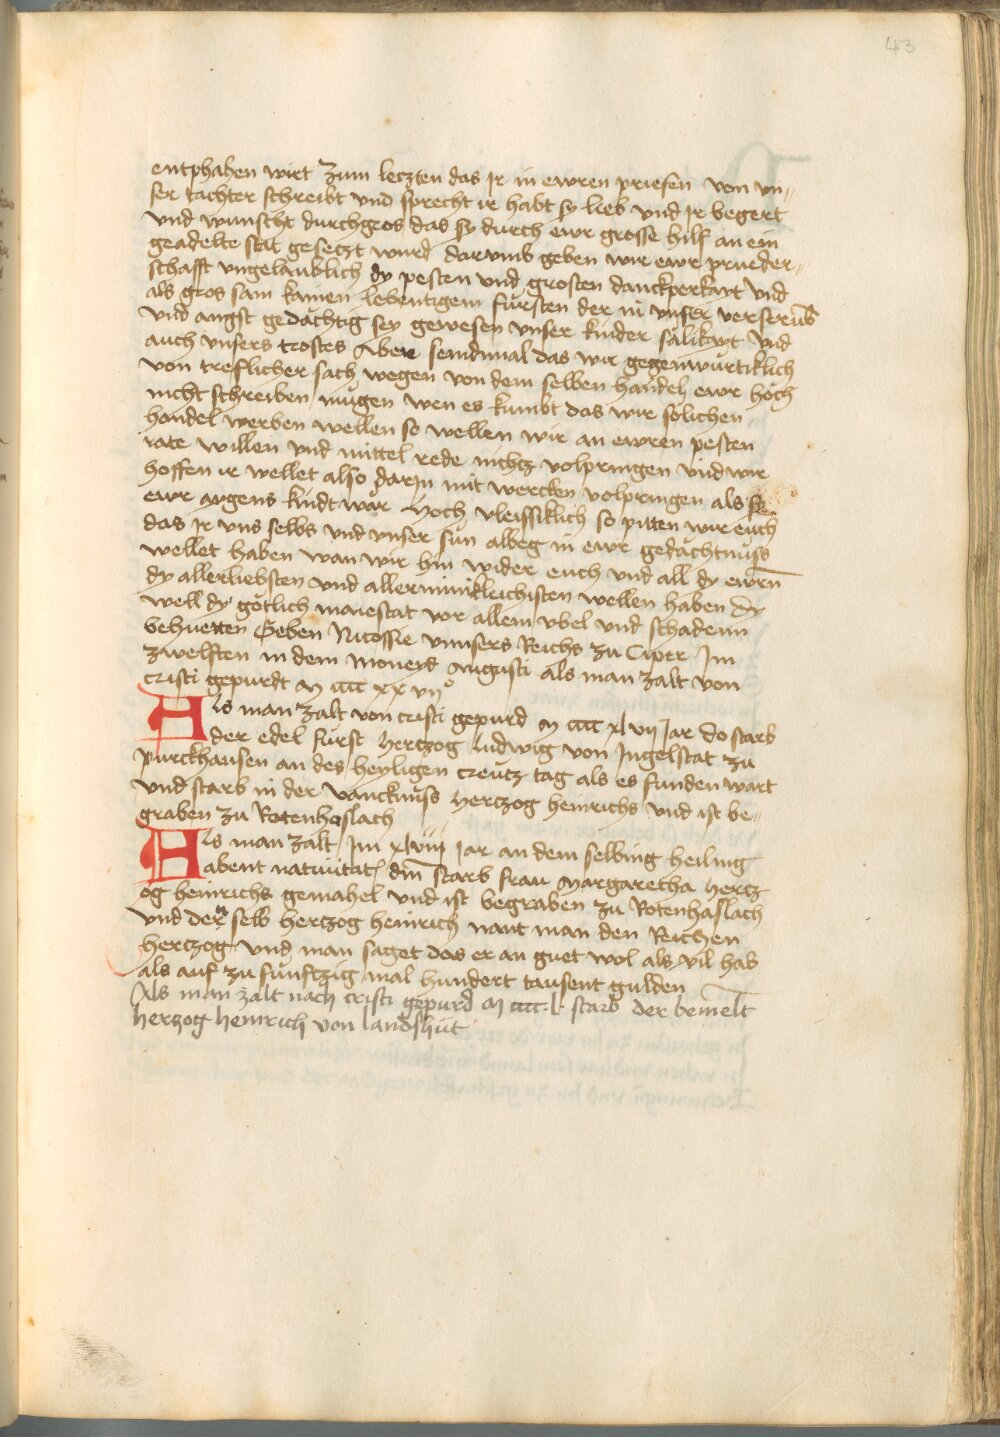 43
entphahen wirt Zum leczten das Jr in ewren priefen von vn„
ser tachter schreibt vnd sprecht ir habt sy lieb vnd Jr begert
vnd wunscht durchgros das sy durch ewr grosse hilf an ein
geadelte stat gesetzt wurd darvmb geben wir ewr prueder„
schafft vngelaublich dy pesten vnd grosten danckperkayt vnd
als gros sam kainen lebentigem fursten der in vnser
vnd angst gedächtig sey gewesen vnser kinder sälikayt vnd
auch vnsers trostes Aber seindmal das wir gegenwurtiklich
von treflicher sach wegen von dem selben handel ewr höch
nicht schreiben mügen wen es kumbt das wir solichen
handel werben wellen so wellen wir an ewren pesten
rate willen vnd mittel rede nichtz volpringen vnd wir
hoffen ir wellet also darin mit wercken volpringen als sy
ewr aygens kindt wär Noch vleissiklich so pitten wir euch
das Jr vns selbs vnd vnser sün albeg in ewr gedächtnuss
wellet haben wan wir hin wider euch vnd all dy ewrn̄
dy allerliebsten vnd allerminikleichisten wellen haben Dy
well dy götlich maiestat vor allem vbel vnd schadenn
behuetten Geben Nicossie vnnsers Reichs zu Ciper Jm
zwelften in dem moneyd Augusti als man zalt von
cristi gepurdt M cccc xx vijo
Als man zalt von cristi gepurd M cccc xlvij Jar do starb
der edel furst Hertzog ludwig von Jngelstat zu
purckhausen an des heyligen creütz tag als es funden wart
vnd starb in der vancknüss Hertzog heinrichs vnd ist be„
graben zu Rotenhaslach
Als man zalt Jm xlviij Jar an dem selbing heiling
abent natiuitat) din̄ starb frau Margaretha Hertz
og heinrichs gemahel vnd ist begraben zu Rotenhaslach
vnd der selb hertzog heinrich nant man den Reichen
hertzog vnd man saget das er an guet wol als vil hab
als auf zu funftzig mal hundert tausent gulden
Als man zalt nach cristi gepurd M cccc.l. starb der bemelt
hertzog heinrich von landshüt